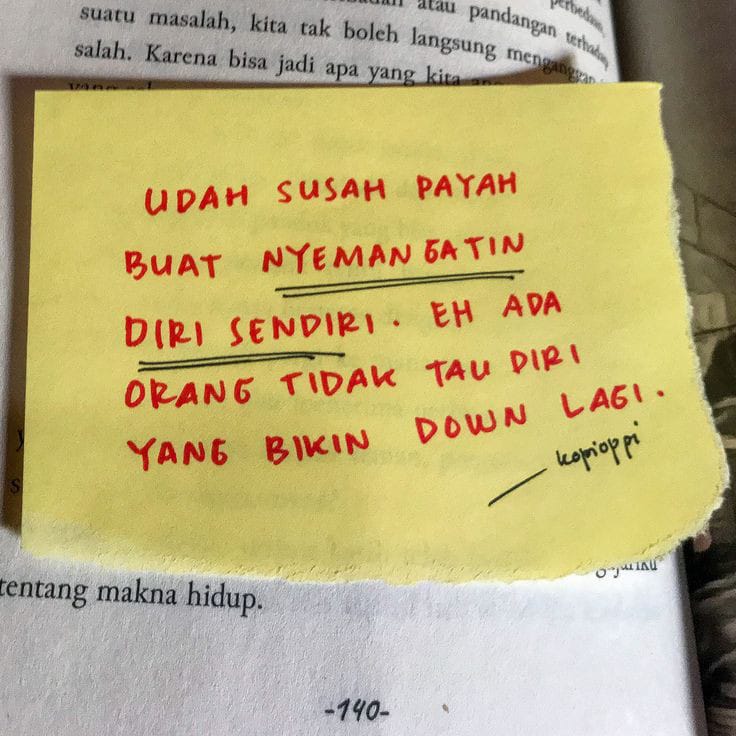 atau pandangan terhadap
suatu masalah, kita tak boleh langsung menganggap
salah. Karena bisa jadi apa yang kita
UDAH SUSAH PAYAH
BUAT NYEMANGATIN
DIRI SENDIRI. EH ADA
ORANG TIDAK TAU DIRI
YANG BIKIN DOWN LAGI.
kopioppi
tentang makna hidup.
-140-